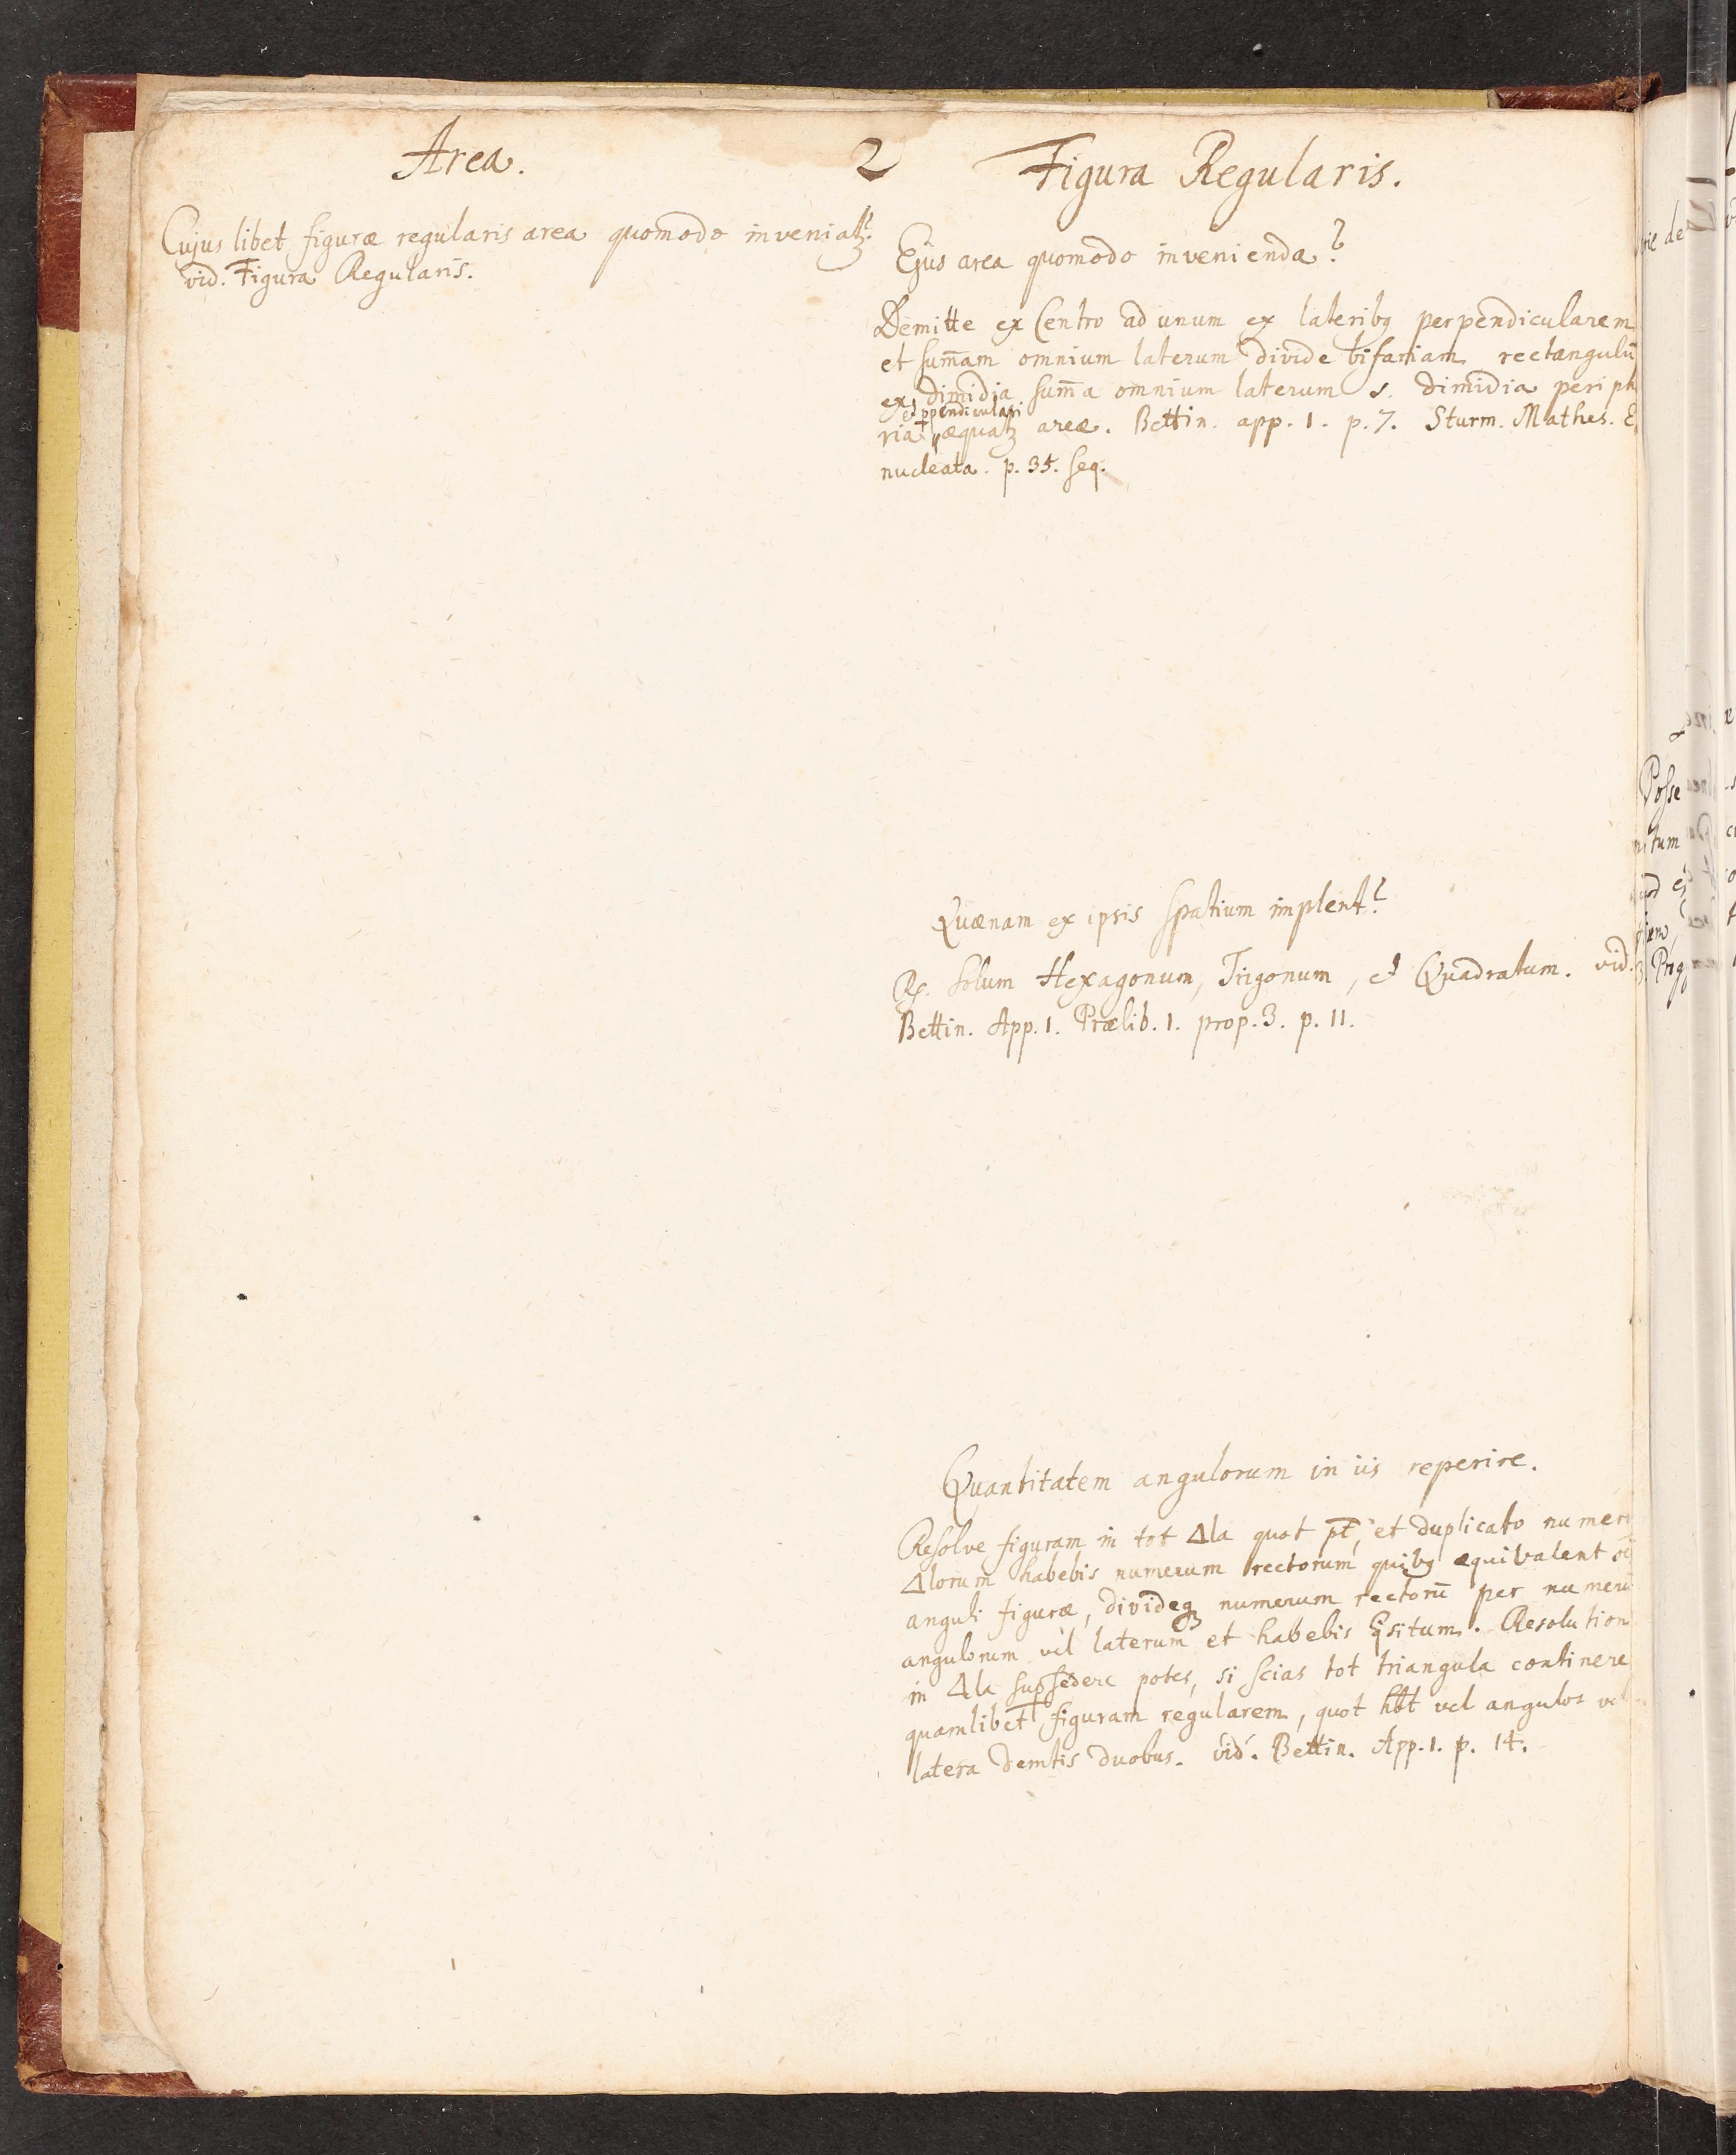 Area.
Cujus libet figuræ regularis area quomodo inveniatꝫ?
vid. Figura Regularis.
2
Figura Regularis.
Ejus area quomodo invenienda?
Demitte ex Centro ad unum ex lateribꝫ perpendicularem
et sum̄am omnium laterum divide bifariam rectangulū
ex dimidia sum̄a omnium laterum s. dimidia periph
et ppendiculari
ria æquatꝫ areæ. Bettin. app. 1. p. 7. Sturm. Mathes. E
nucleata. p. 35. seq.
Quænam ex ipsis spatium implent?
Rx. Solum Hexagonum, Trigonum, et Quadratum. vid.
Bettin. App. 1. Prælib. 1. prop. 3. p. 11.
Quantitatem angulorum in iis reperire.
Resolve figuram in tot Δla quot pt̄, et duplicato numero
Δlorum habebis numerum rectorum quibꝫ æquivalent
anguli figuræ, divideqꝫ numerum rectorū per numerū
angulorum vel laterum et habebis qsitum. Resolution
in Δla supsedere potes, si scias tot triangula continere
quamlibet figuram regularem, quot hbt vel angulos vel
latera demtis duobus. vid. Bettin. App. 1. p. 14.
Posse